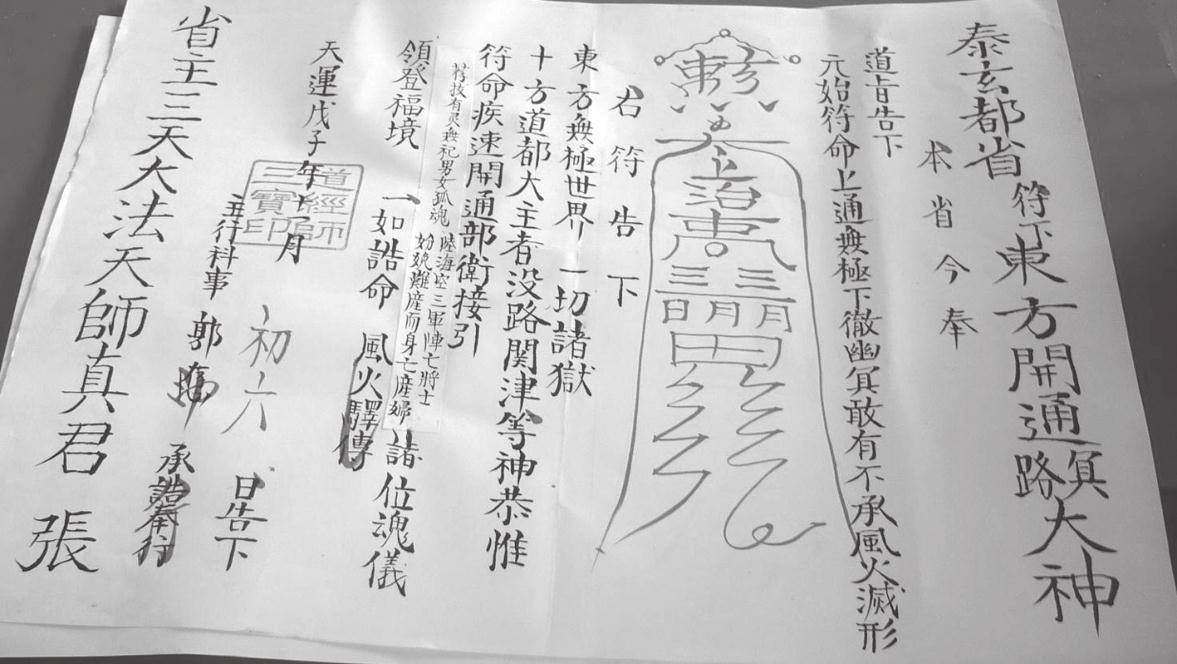 泰玄都省 符下東方開通冥路大神
本省今奉
道旨告下
元始符命上通無極下徹幽冥敢有不承風火滅形
右符告下
東方無極世界一切諸獄
十方道都大主者没路関津等神恭惟
符命疾速開通部衛接引
薦拔有灵無祀男女孤魂 陸海空三軍陣亡將士 難産而身亡産婦 諸位魂儀
領登福境
一如誥命 風火驛傳
天運戊子年十月初六日告下
道經師三寶印
五行科事 郭 承誥奉行
省主三天大法天師真君 張